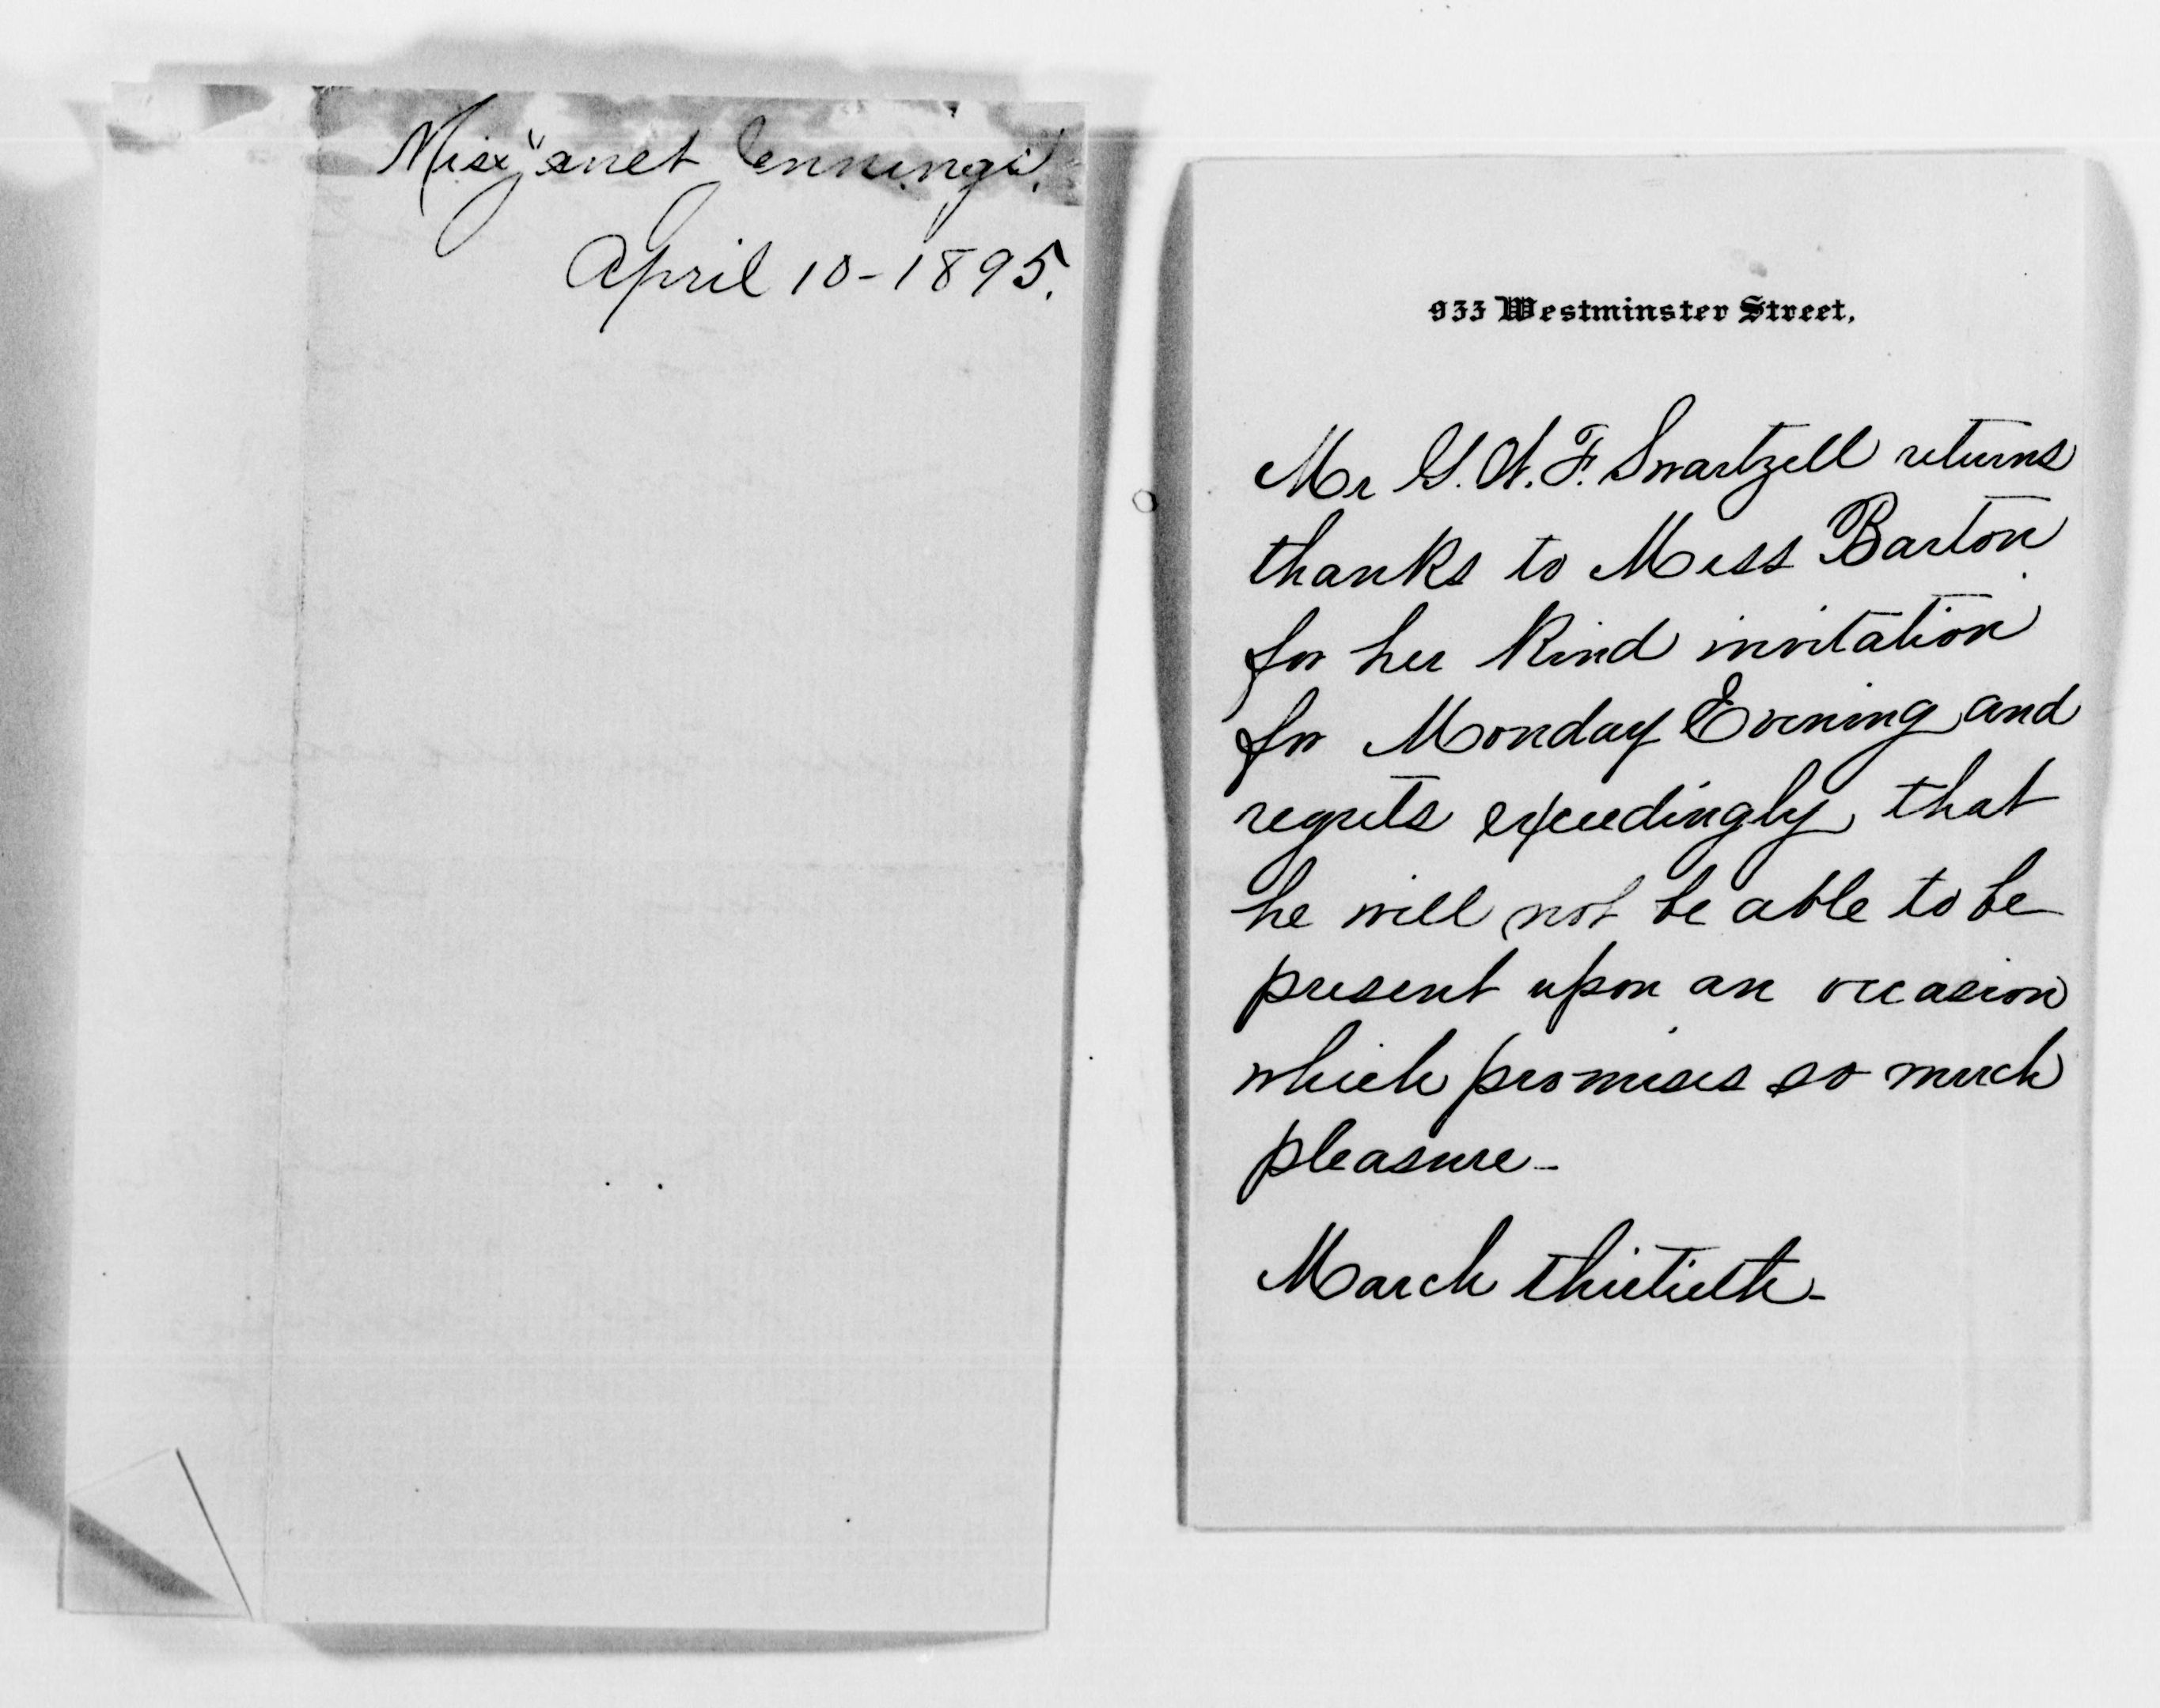 Miss Janet Jennings.
April 10-1895.
933 Westminster Street.
Mr G. W. F. Swartzell returns
thanks to Miss Barton
for her kind invitation
for Monday Evening and
regrets exceedingly that
he will not be able to be
present upon an occasion
which promises so much
pleasure-
March thirtieth-